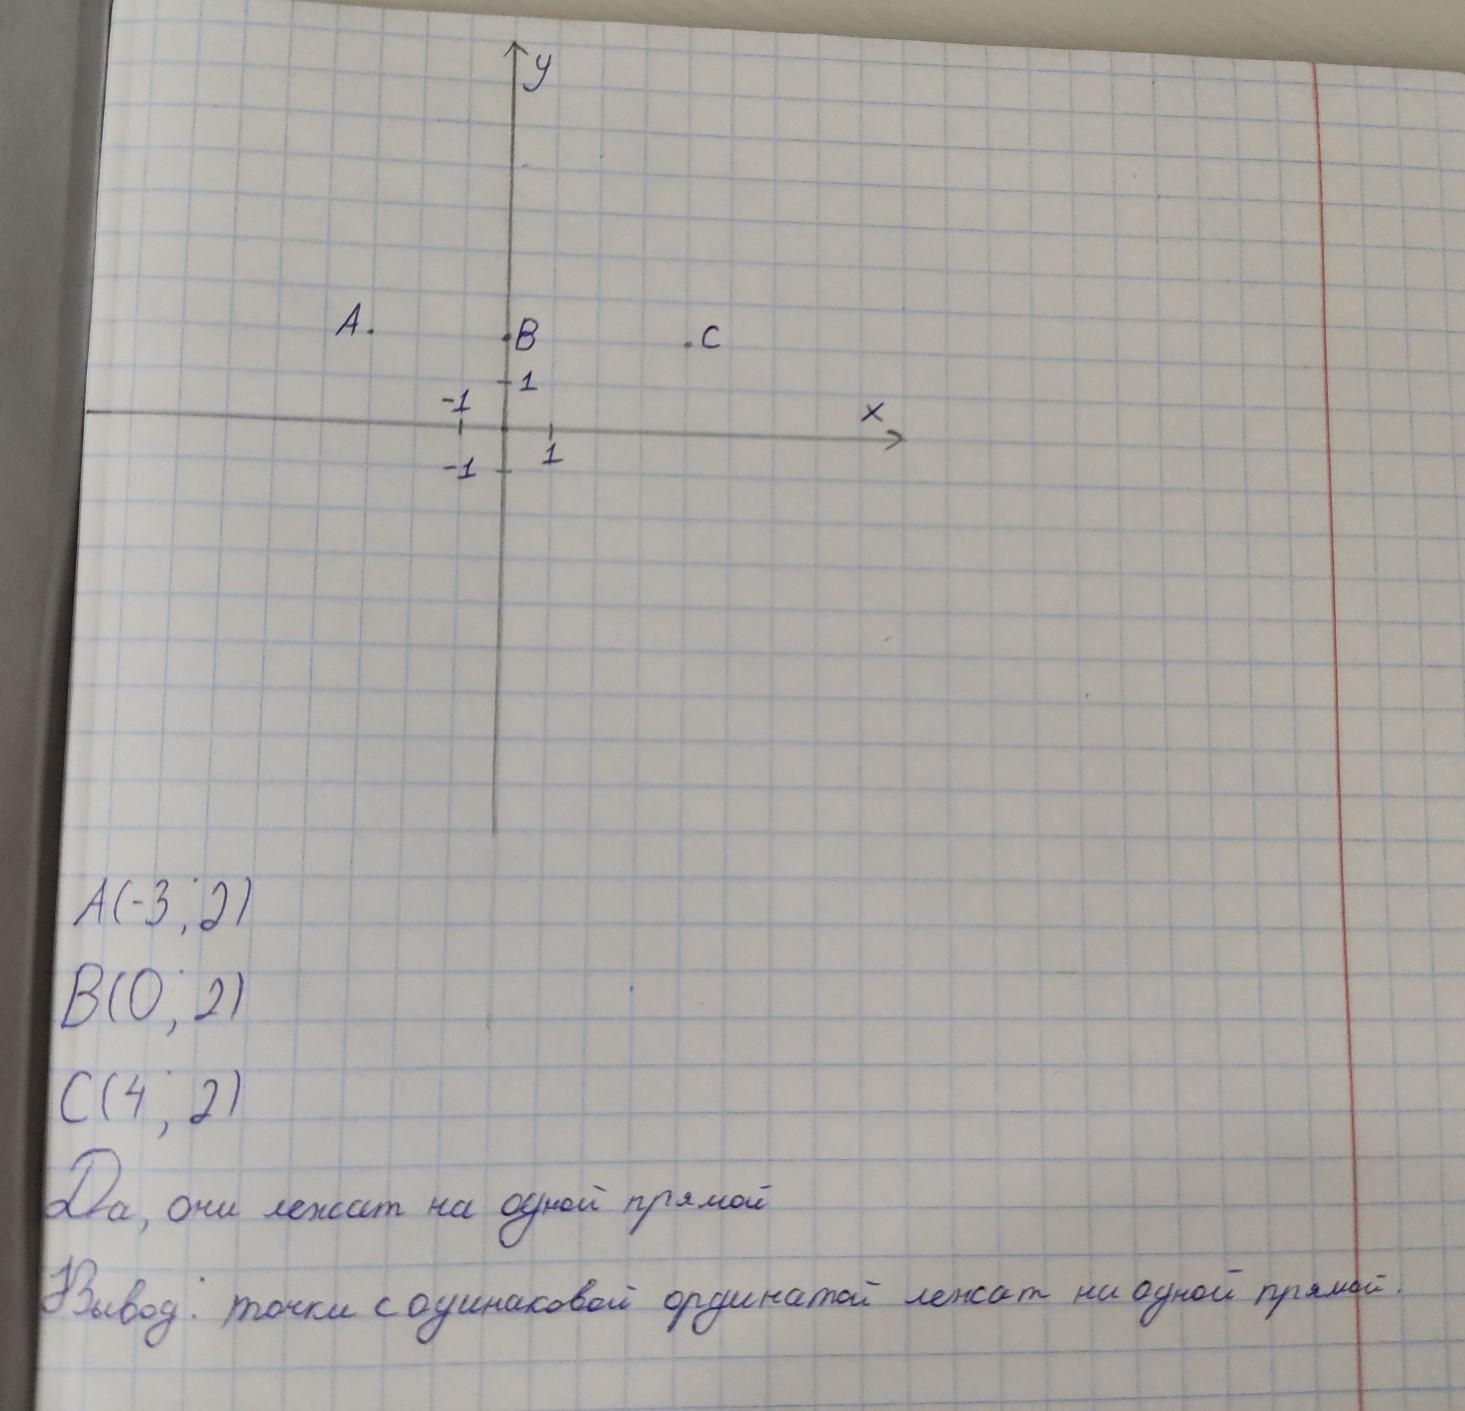 y
A. B . C
1
-1 x
-1 1
A(-3; 2)
B(0; 2)
C(4; 2)
Да, они лежат на одной прямой
Вывод: точки с одинаковой ординатой лежат на одной прямой.